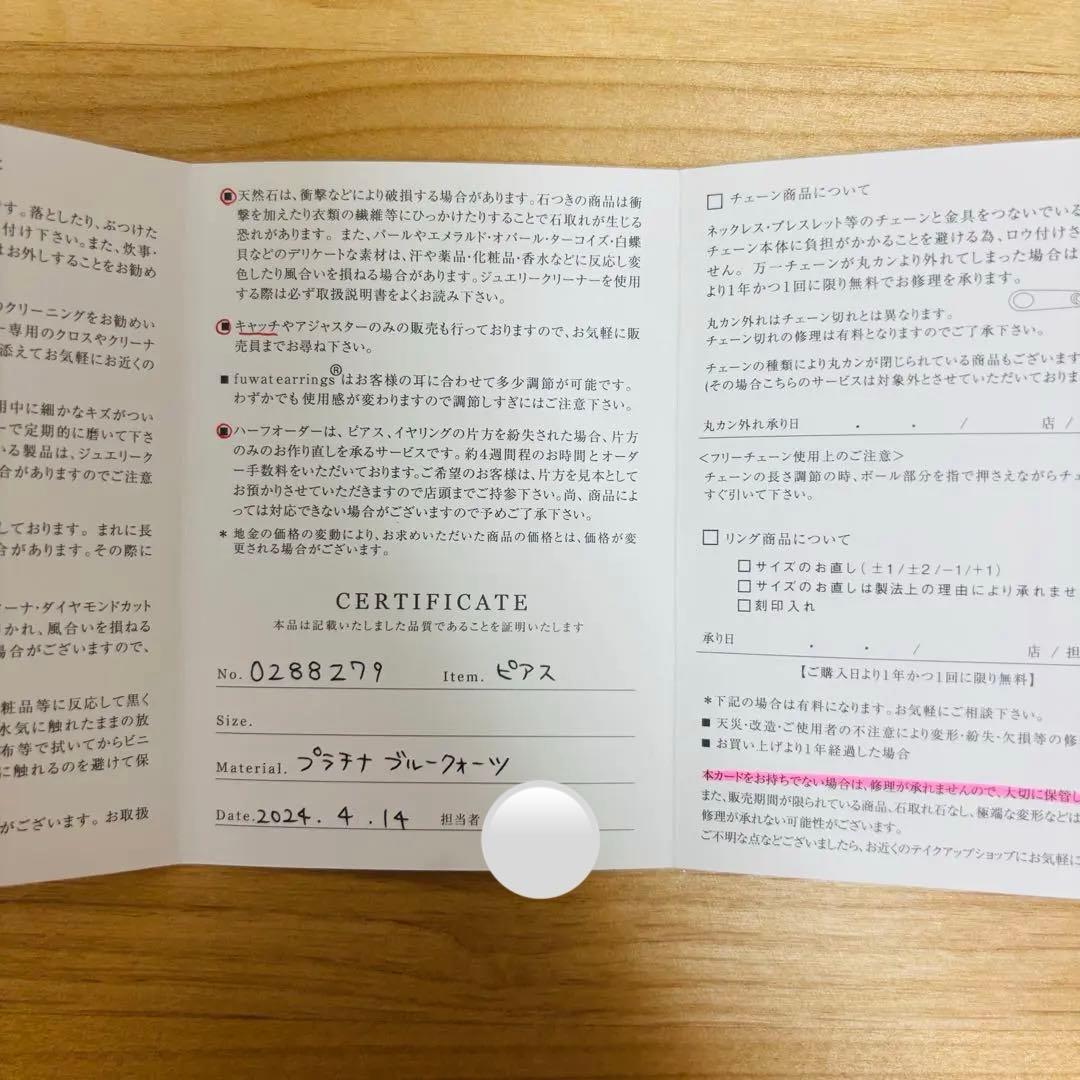 す。落としたり、ぶつけた
付け下さい。また、炊事・
はお外しすることをお勧め
のクリーニングをお勧めい
ー専用のクロスやクリーナ
添えてお気軽にお近くの
用中に細かなキズがつい
ーで定期的に磨いて下さ
いる製品は、ジュエリーク
合がありますのでご注意
しております。まれに長
合があります。その際に
ーナ・ダイヤモンドカット
かれ、風合いを損ねる
場合がございますので、
粧品等に反応して黒く
水気に触れたままの放
布等で拭いてからビニ
に触れるのを避けて保
がございます。お取扱
■ 天然石は、衝撃などにより破損する場合があります。石つきの商品は衝
撃を加えたり衣類の繊維等にひっかけたりすることで石取れが生じる
恐れがあります。また、パールやエメラルド・オパール・ターコイズ・白蝶
貝などのデリケートな素材は、汗や薬品・化粧品・香水などに反応し変
色したり風合いを損ねる場合があります。ジュエリークリーナーを使用
する際は必ず取扱説明書をよくお読み下さい。
■ キャッチやアジャスターのみの販売も行っておりますので、お気軽に販
売員までお尋ね下さい。
■ fuwatearrings®はお客様の耳に合わせて多少調節が可能です。
わずかでも使用感が変わりますので調節しすぎにはご注意下さい。
■ ハーフオーダーは、ピアス、イヤリングの片方を紛失された場合、片方
のみのお作り直しを承るサービスです。約4週間程のお時間とオーダ
ー手数料をいただいております。ご希望のお客様は、片方を見本として
お預かりさせていただきますので店頭までご持参下さい。尚、商品によ
っては対応できない場合がございますので予めご了承下さい。
* 地金の価格の変動により、お求めいただいた商品の価格とは、価格が変
更される場合がございます。
CERTIFICATE
本品は記載いたしました品質であることを証明いたします
No. 0288279 Item. ピアス
Size.
Material. プラチナ ブルークォーツ
Date. 2024. 4. 14 担当者
□ チェーン商品について
ネックレス・ブレスレット等のチェーンと金具をつないでいる
チェーン本体に負担がかかることを避ける為、ロウ付けさ
せん。万一チェーンが丸カンより外れてしまった場合は
より1年かつ1回に限り無料でお修理を承ります。
丸カン外れはチェーン切れとは異なります。
チェーン切れの修理は有料となりますのでご了承下さい。
チェーンの種類により丸カンが閉じられている商品もございます
(その場合こちらのサービスは対象外とさせていただいておりま
丸カン外れ承り日 ・ ・ / 店 /
<フリーチェーン使用上のご注意>
チェーンの長さ調節の時、ボール部分を指で押さえながらチェ
すぐ引いて下さい。
□ リング商品について
□ サイズのお直し(±1/±2/−1/+1)
□ サイズのお直しは製法上の理由により承れませ
□ 刻印入れ
承り日 ・ ・ / 店 / 担
【ご購入日より1年かつ1回に限り無料】
*下記の場合は有料になります。お気軽にご相談下さい。
■ 天災・改造・ご使用者の不注意により変形・紛失・欠損等の修
■ お買い上げより1年経過した場合
本カードをお持ちでない場合は、修理が承れませんので、大切に保管し
また、販売期間が限られている商品、石取れ石なし、極端な変形などは
修理が承れない可能性がございます。
ご不明な点などございましたら、お近くのテイクアップショップにお気軽に